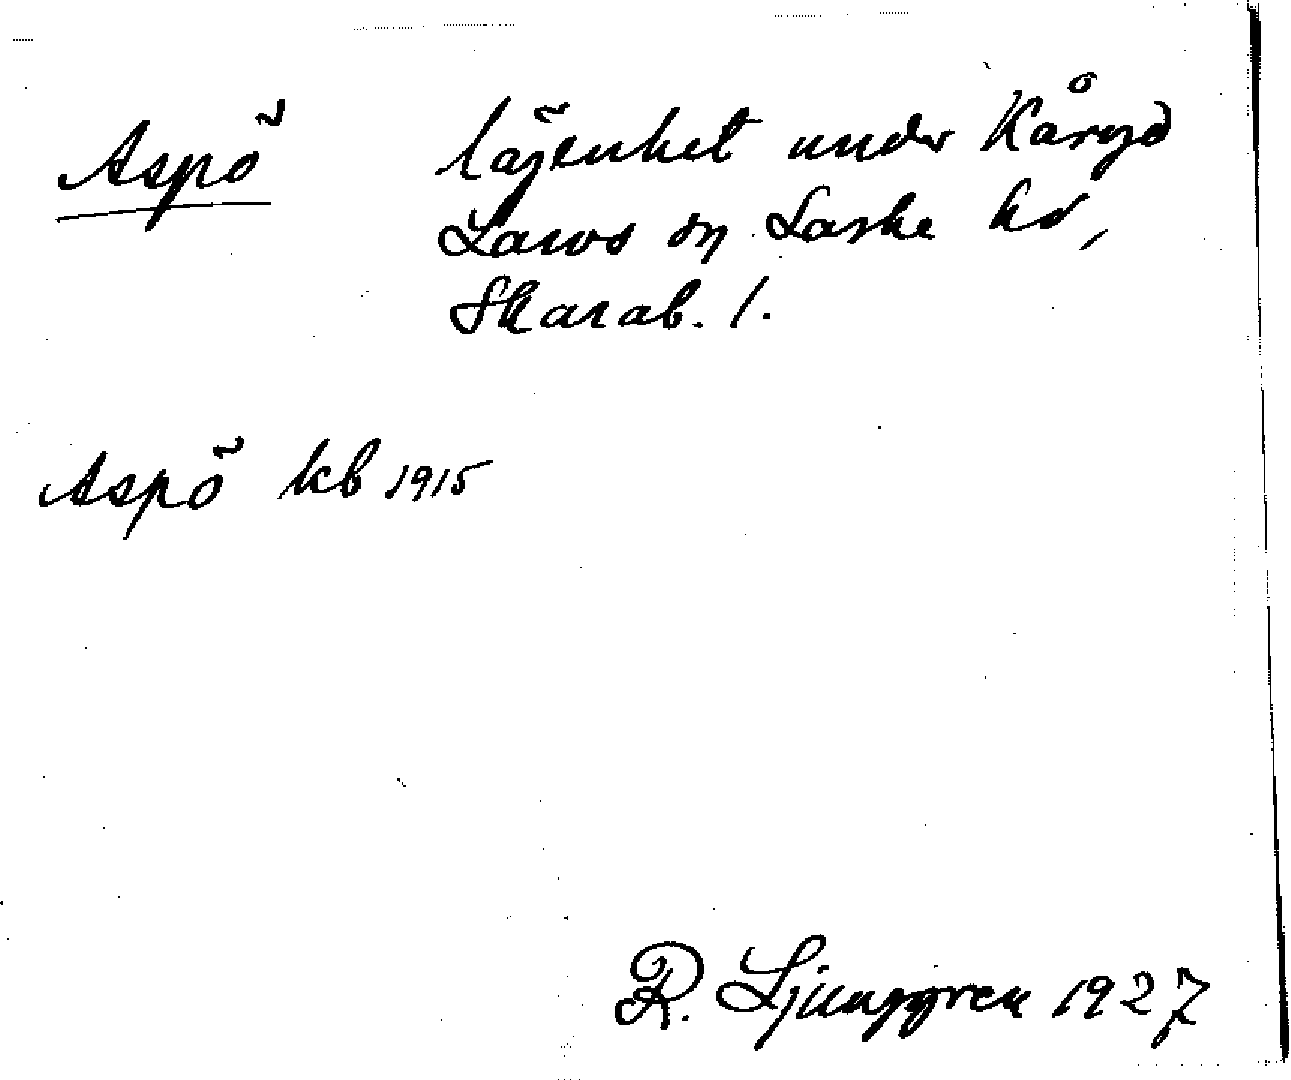 Aspö lägenhet under Kåryd
Larvs sn Laske hd,
Skarab. l.
Aspö kb 1915
R. Ljunggren 1927